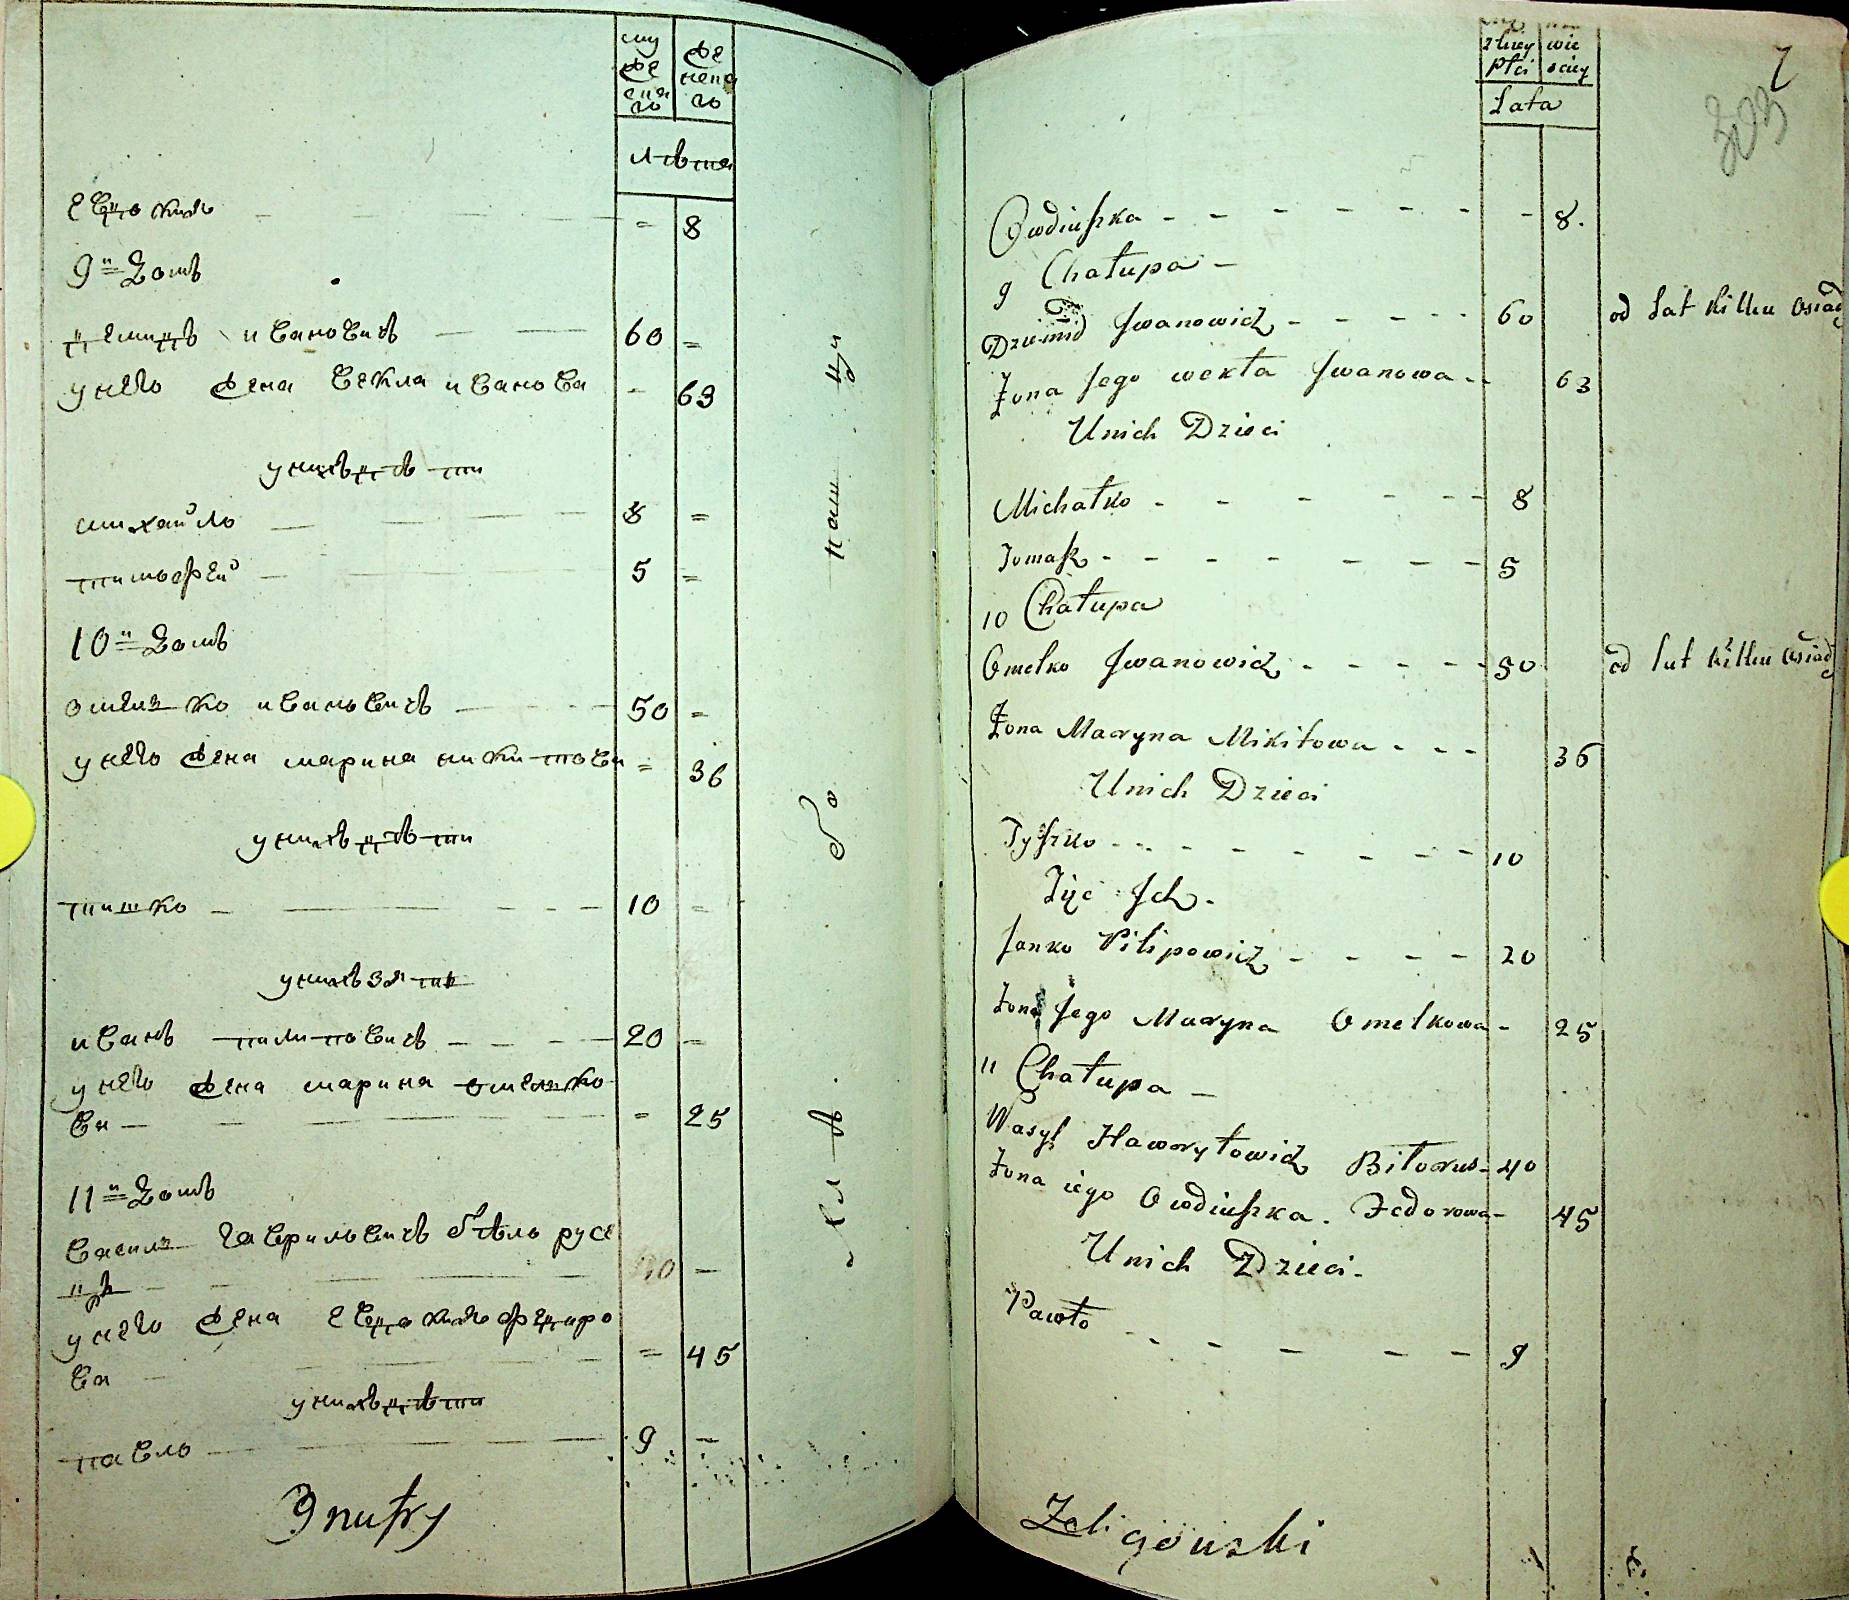 му
же
ска
го
же
нска
го
лѣта
евдокия = 8
9й Домъ
демидъ ивановичъ 60 =
у него жена векла иванова - 63
у нихъ дѣти
михайло 8 =
тимофей 5 =
10й Домъ
омелько ивановичъ 50 =
у него жена марина никитова = 36
у нихъ дѣти
тишко 10 =
у нихъ зять
иванъ пилиповичъ 20 =
у него жена марина омелько
ва = 25
11й Домъ
василь гаврильевичъ бѣло русе
цъ 40 -
у него жена евдокия федоро
ва = 45
у нихъ дѣти
павло 9 -
7
303
zkiey
płci
wie
sciey
Lata
Owdiuszka - - - - - - 8.
9 Chałupa -
Dziemid Jwanowicz - - - - 60 od lat kilku osiad
Żona Jego wekła Jwanowa - - 63
Unich Dzieci
Michałko - - - - - 8
Tomasz - - - - - - 5
10 Chałupa
Omelko Jwanowicz - - - - 50 od lat kilku osiad
Żona Maryna Mikitowa - - - 36
Unich Dzieci
Tyszko - - - - - - 10
Zięć Jch -
Janko Pilipowicz - - - - 20
Żona Jego Maryna Omelkowa - 25
11 Chałupa -
Wasyl Hawryłowicz Biłorus - 40
Żona iego Owdiuszka Fedorowa - 45
Unich Dzieci -
Pawło - - - - - 9
Zeligowski